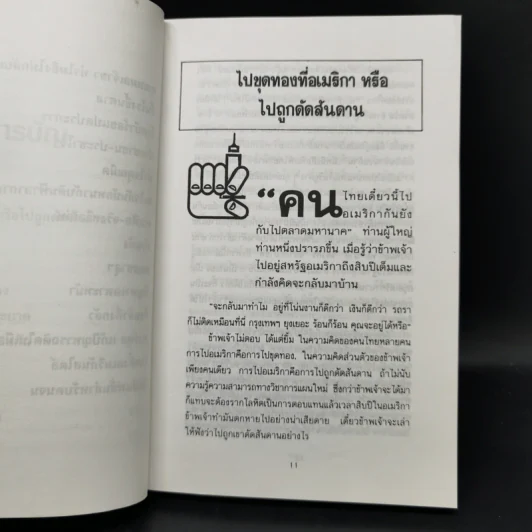 ไปขุดทองที่อเมริกา หรือ
ไปถูกดัดสันดาน
“คน ไทยเดี๋ยวนี้ไป
อเมริกากันยัง
กับไปตลาดมหานาค” ท่านผู้ใหญ่
ท่านหนึ่งปรารภขึ้น เมื่อรู้ว่าข้าพเจ้า
ไปอยู่สหรัฐอเมริกาถึงสิบปีเต็มและ
กำลังคิดจะกลับมาบ้าน
“จะกลับมาทำไม อยู่ที่โน่นงานก็ดีกว่า เงินก็ดีกว่า รถรา
ก็ไม่ติดเหมือนที่นี่ กรุงเทพฯ ยุงเยอะ ร้อนก็ร้อน คุณจะอยู่ได้หรือ”
ข้าพเจ้าไม่ตอบ ได้แต่ยิ้ม ในความคิดของคนไทยหลายคน
การไปอเมริกาคือการไปขุดทอง, ในความคิดส่วนตัวของข้าพเจ้า
เพียงคนเดียว การไปอเมริกาคือการไปถูกดัดสันดาน ถ้าไม่นับ
ความรู้ความสามารถทางวิชาการแผนใหม่ ซึ่งกว่าข้าพเจ้าจะได้มา
ก็แทบจะต้องรากโลหิตเป็นการตอบแทนแล้วเวลาสิบปีในอเมริกา
ข้าพเจ้าทำมันตกหายไปอย่างน่าเสียดาย เดี๋ยวข้าพเจ้าจะเล่า
ให้ฟังว่าไปถูกเขาดัดสันดานอย่างไร
11